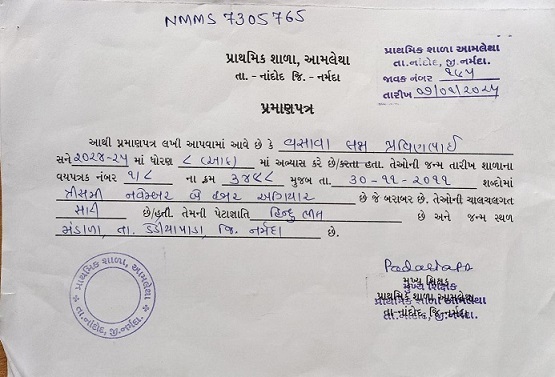 NMMS 7305765
પ્રાથમિક શાળા, આમલેથા
તા. - નાંદોદ જિ. - નર્મદા
પ્રાથમિક શાળા આમલેથા
તા.નાંદોદ, જી.નર્મદા.
જાવક નંબર ૧૫૫
તારીખ ૦૭/૦૧/૨૦૨૫
પ્રમાણપત્ર
આથી પ્રમાણપત્ર લખી આપવામાં આવે છે કે વસાવા પ્રવિણભાઈ
સને ૨૦૨૪-૨૫ માં ધોરણ ૮ (આઠ) માં અભ્યાસ કરે છે/કરતા હતા. તેઓની જન્મ તારીખ શાળાના
વયપત્રક નંબર ૧/૮ ના ક્રમ ૩૪૯૮ મુજબ તા. ૩૦-૧૧-૨૦૧૧ શબ્દોમાં
ત્રીસમી નવેમ્બર બે હજાર અગિયાર છે જે બરાબર છે. તેઓની ચાલચલગત
સારી છે/હતી. તેમની પેટાજ્ઞાતિ હિન્દુ ભીલ છે અને જન્મ સ્થળ
મંડાળા, તા. ડેડીયાપાડા, જિ. નર્મદા છે.
મુખ્ય શિક્ષક
પ્રાથમિક શાળા આમલેથા
તા.નાંદોદ, જી.નર્મદા.
પ્રાથમિક શાળા, આમલેથા
તા.નાંદોદ, જી.નર્મદા